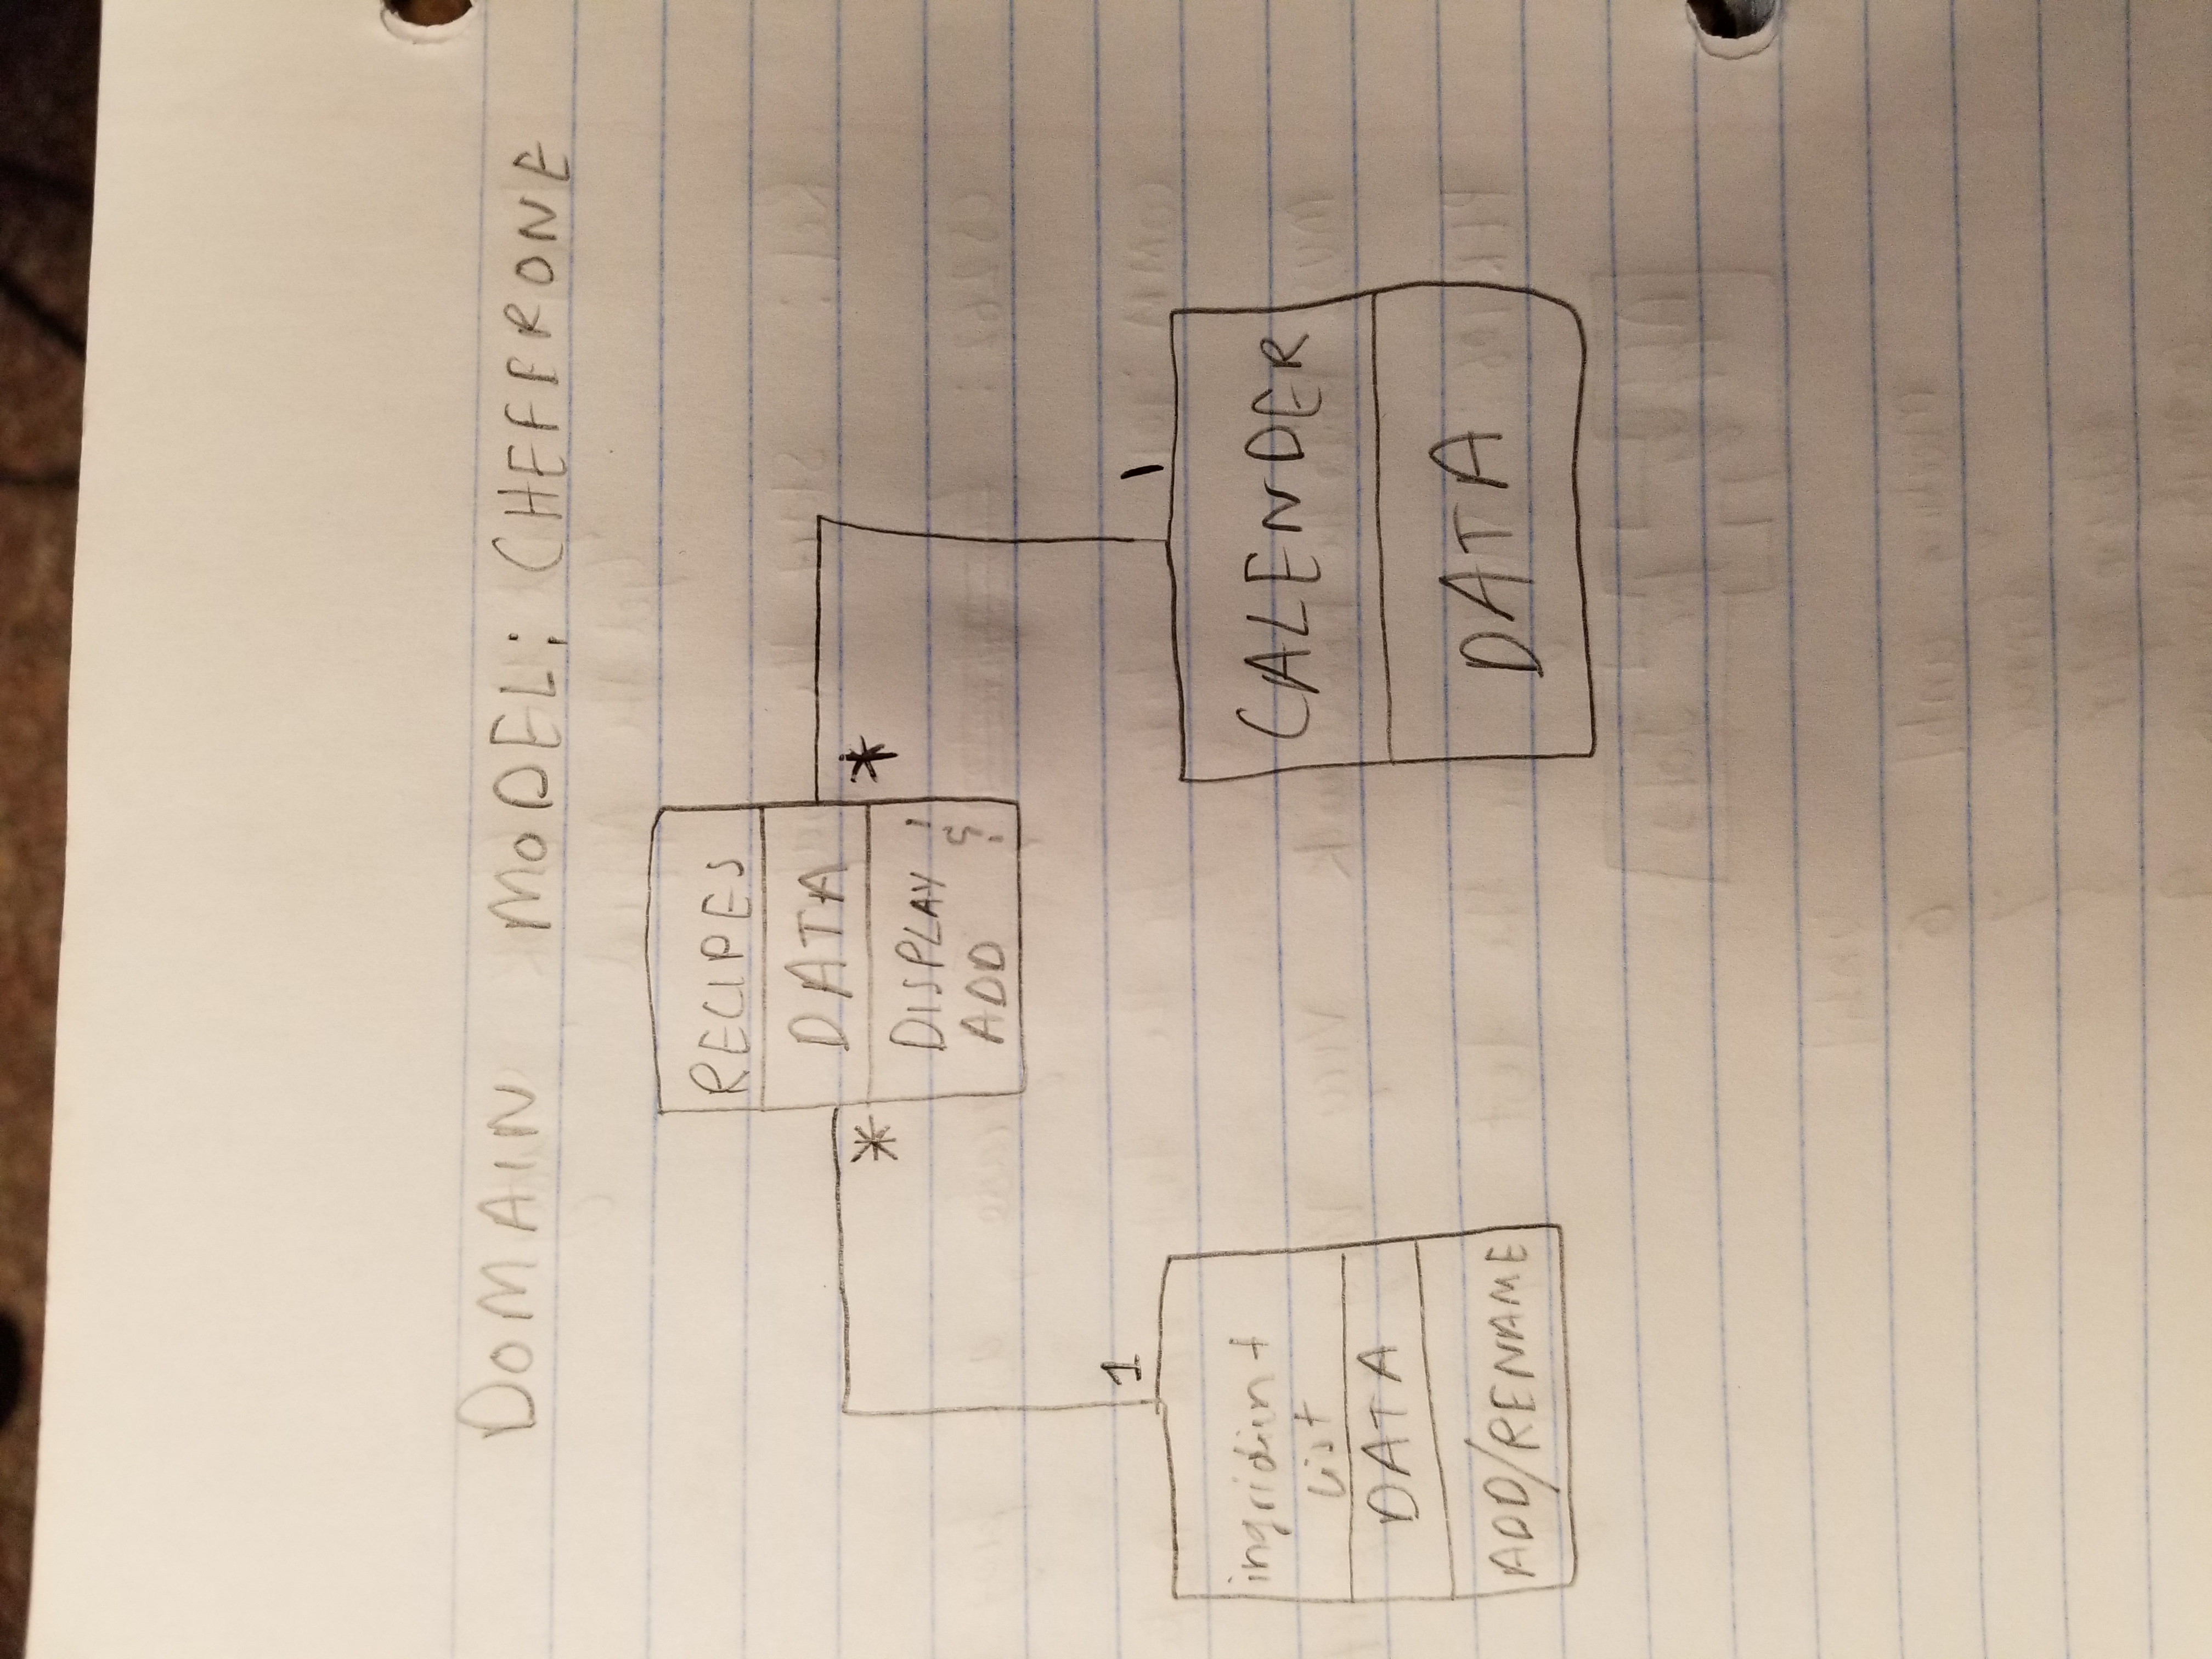 DOMAIN MODEL: CHEFFRONE
RECIPES
DATA
* *
DISPLAY
ADD
1
1
ingridient
List
DATA
ADD/RENAME
CALENDER
DATA